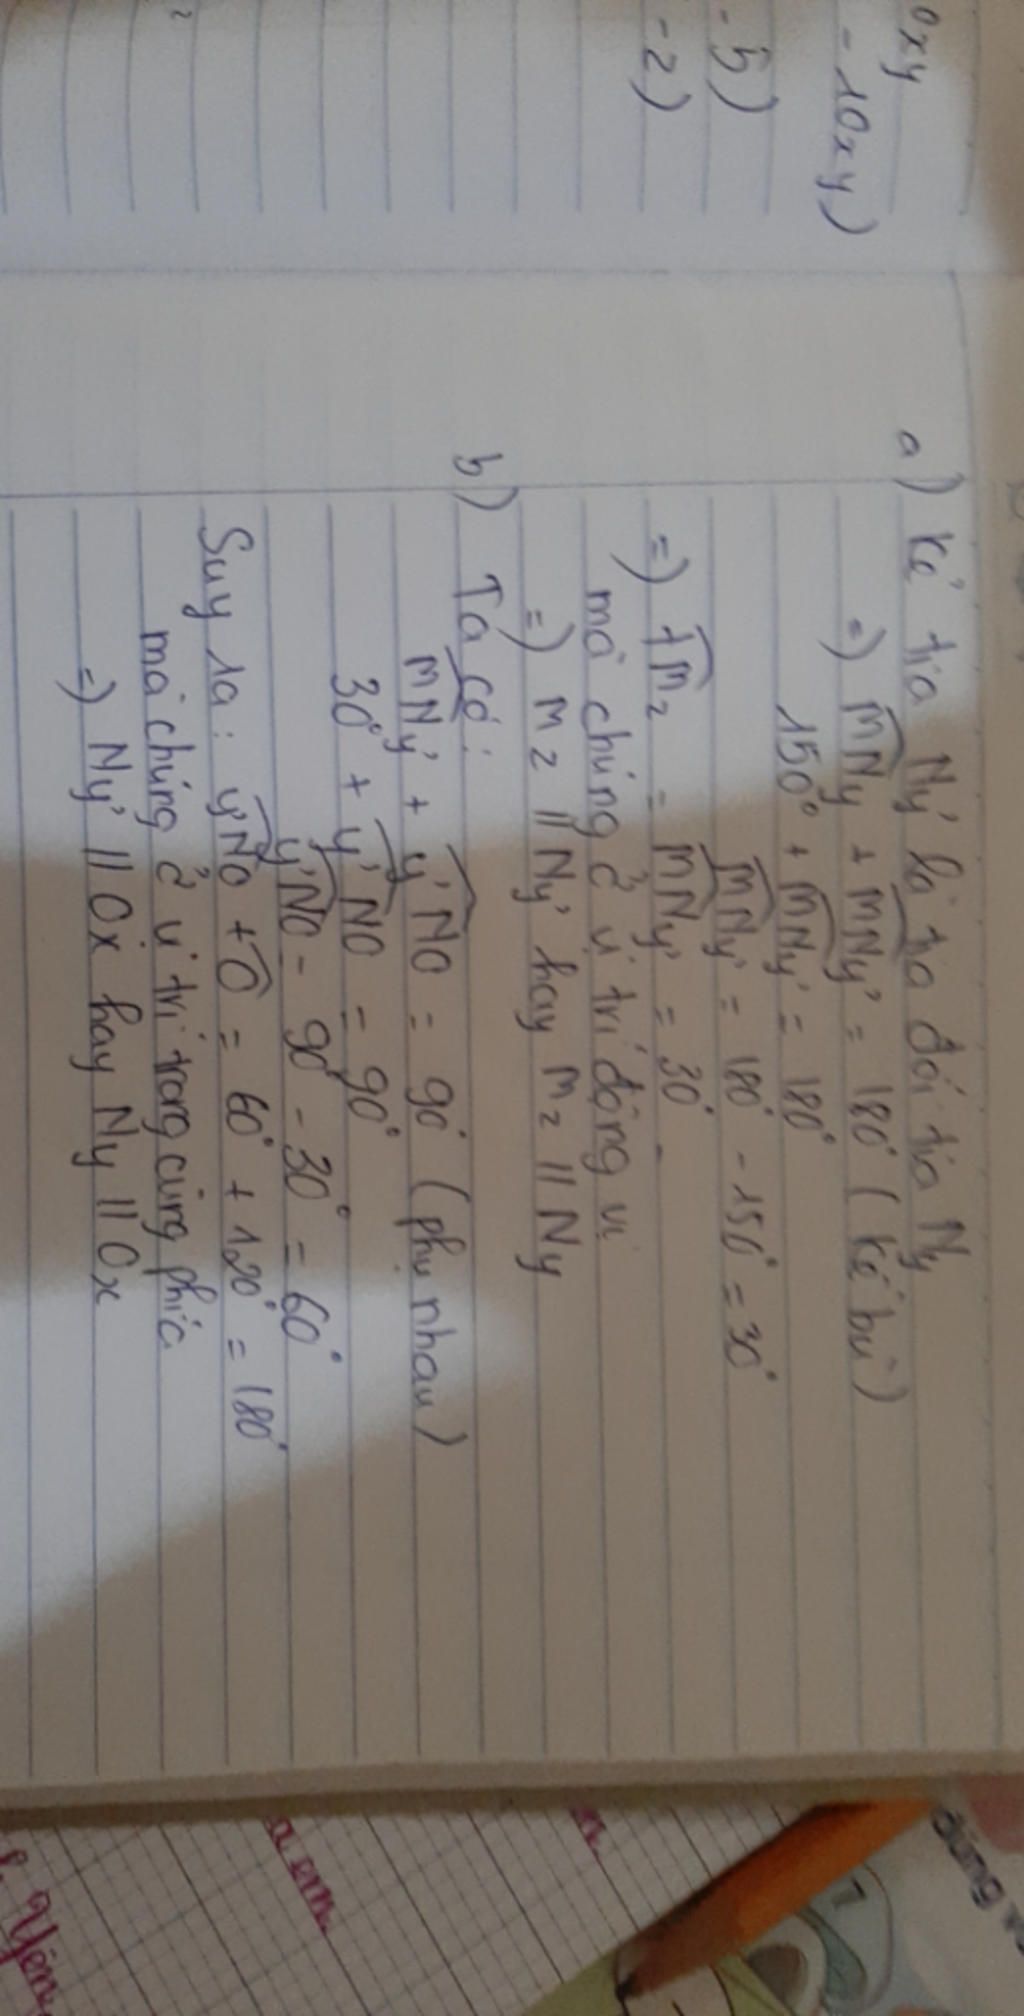 oxy
- 10xy)
- 5)
- 2)
2
a) Kẻ tia Ny' là tia đối tia Ny
=) MNy + MNy' = 180° (kề bù)
150° + MNy' = 180°
MNy' = 180° - 150° = 30°
=) tMz = MNy' = 30°
mà chúng ở vị trí đồng vị
=) Mz // Ny' hay Mz // Ny
b) Ta có:
MNy' + y'NO = 90° (phụ nhau)
30° + y'NO = 90°
y'NO = 90° - 30° = 60°
Suy ra: y'NO + O = 60° + 120° = 180°
mà chúng ở vị trí trong cùng phía
=) Ny' // Ox hay Ny // Ox
đúng
a em
Yên